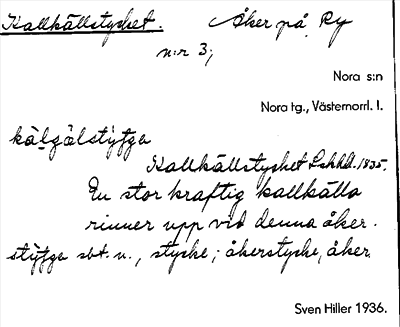 Kallkällstycket. Åker på Ry
n:r 3;
Nora s:n
Nora tg., Västernorrl. l.
kälgälstýtga
Kallkällstycket Lskhdl. 1835.
En stor kraftig kallkälla
rinner upp vid denna åker.
stýtga sbt. n., stycke; åkerstycke, åker.
Sven Hiller 1936.